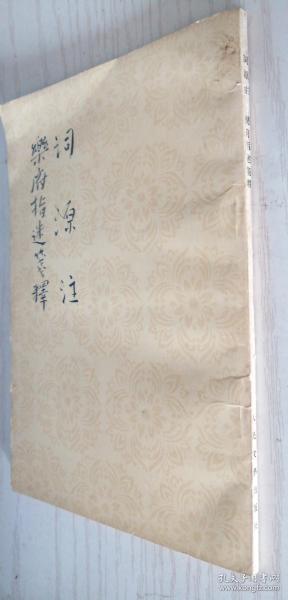 词源注
樂府指迷笺釋
词源注 樂府指迷笺釋
人民文學出版社
孔夫子旧书网